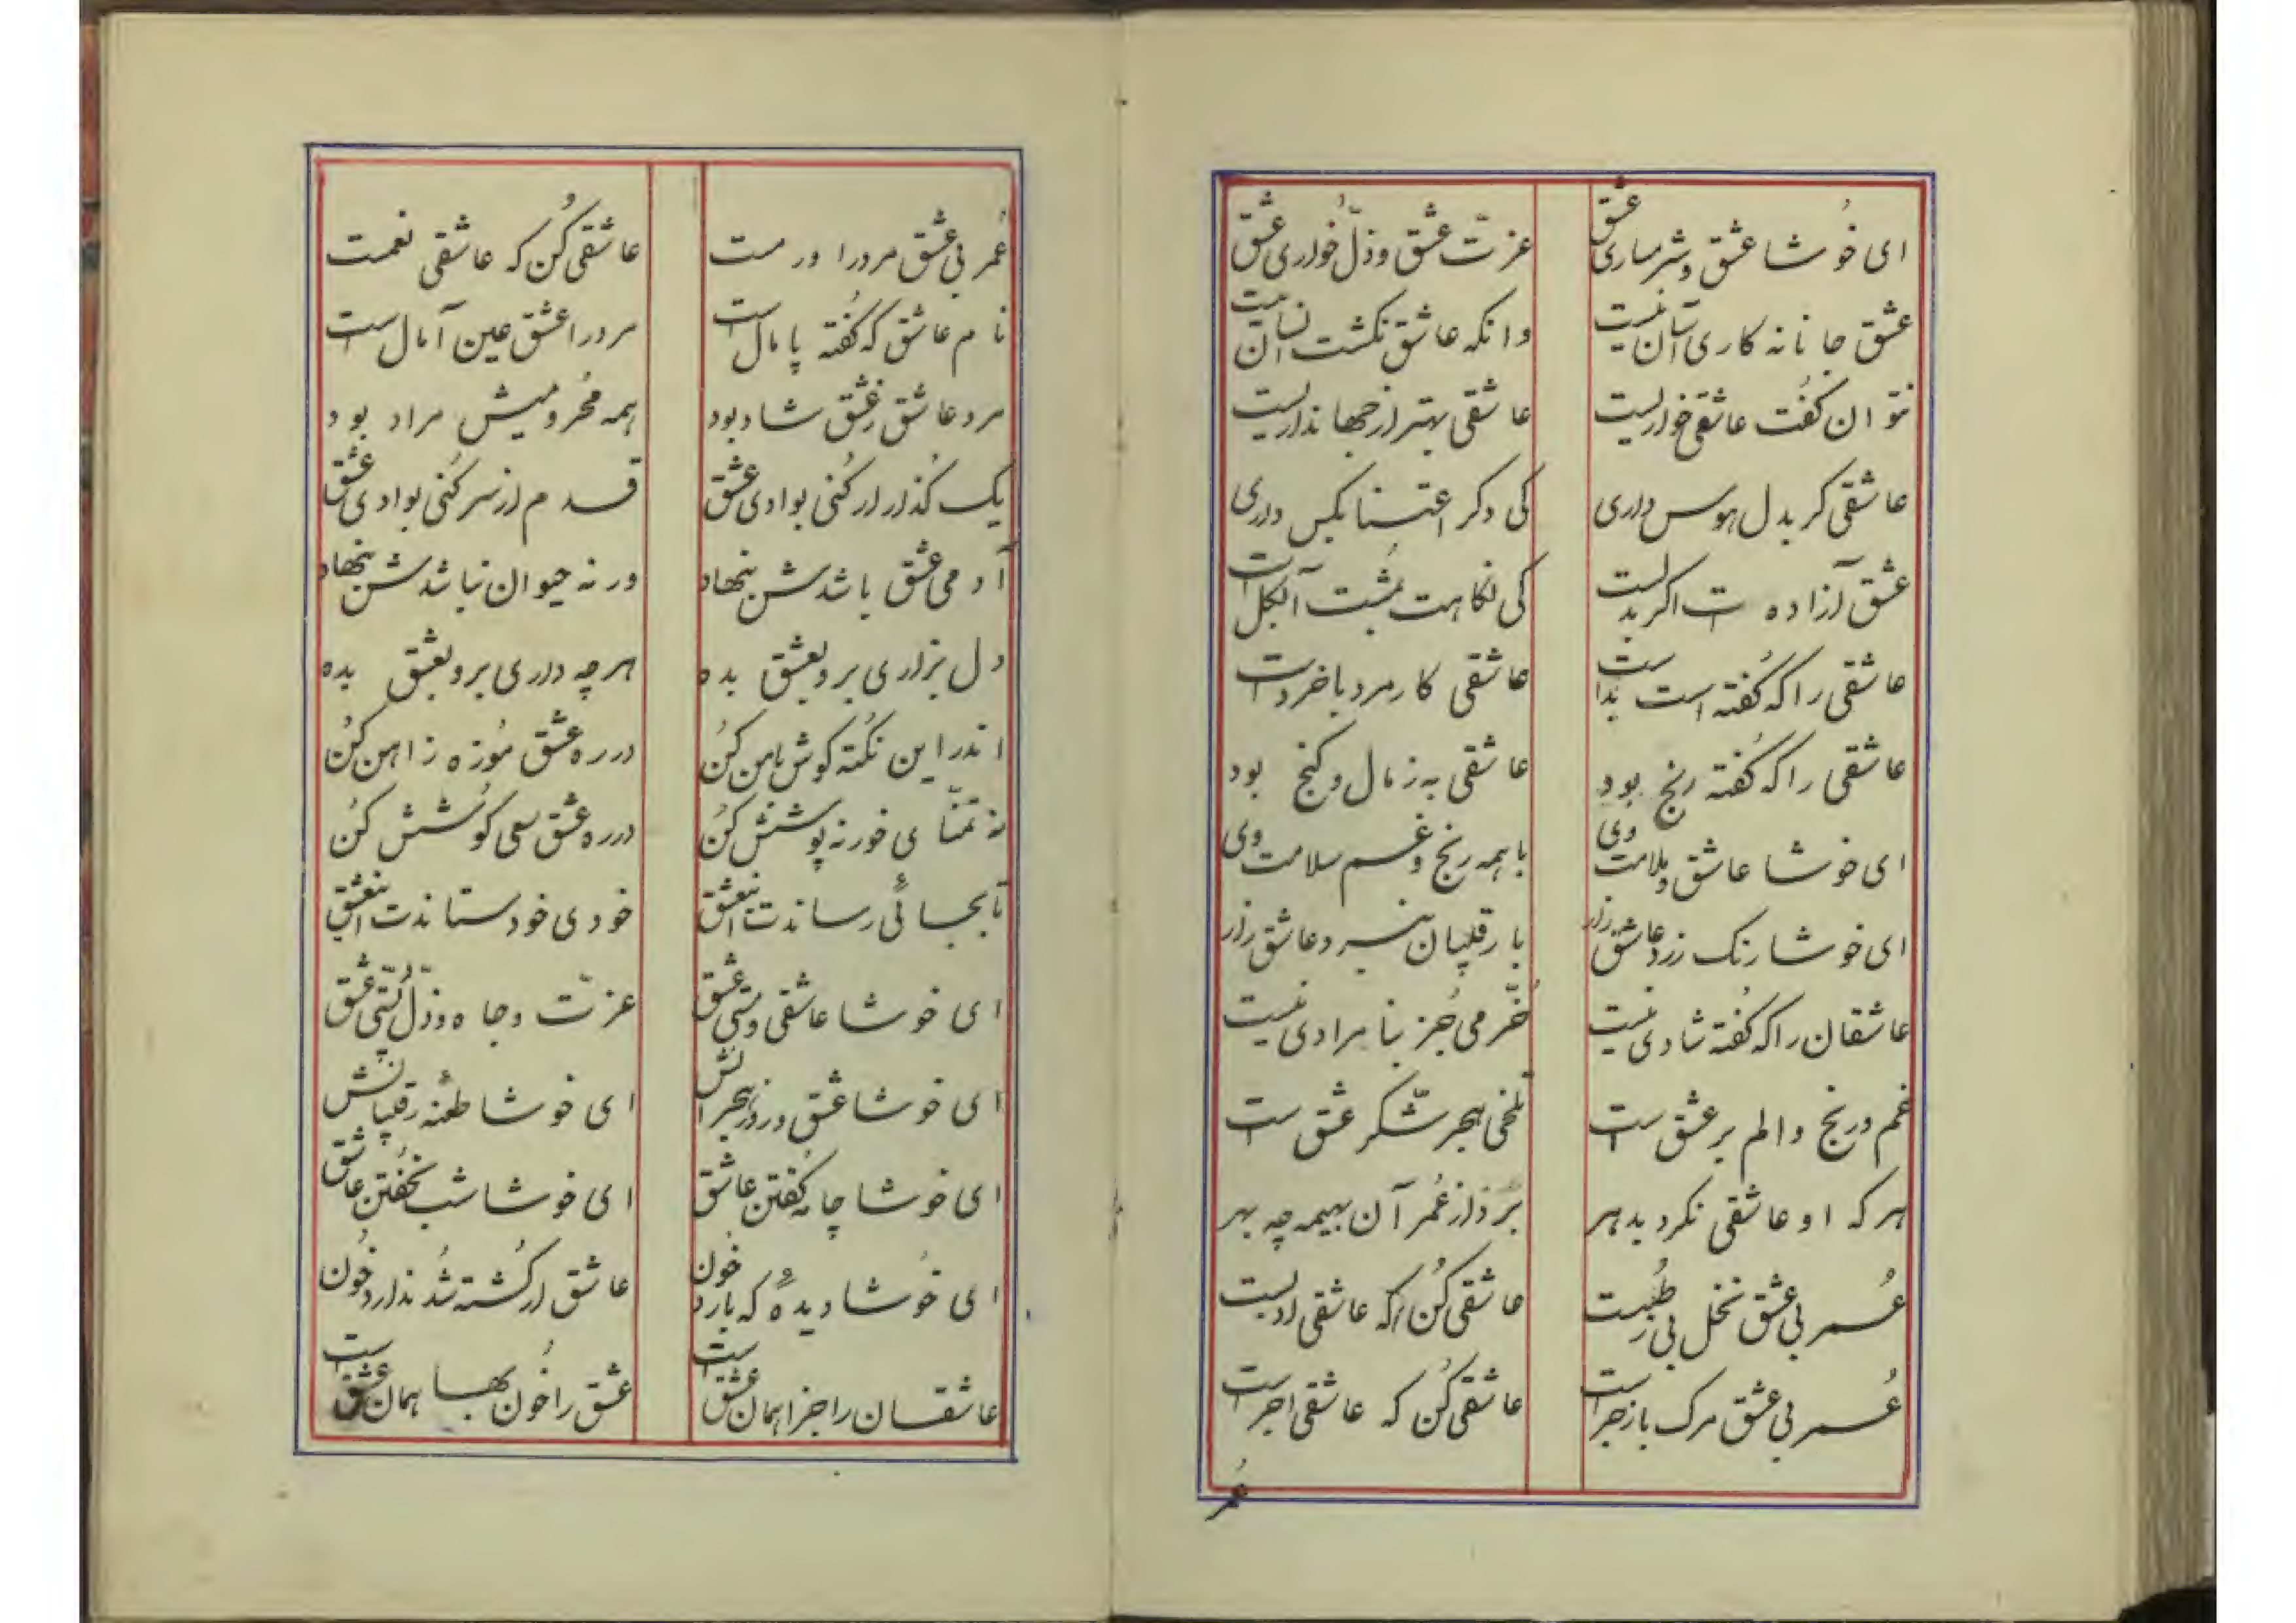 ای خُوشا عشق و شرمساری عشق عزّت عشق و ذلّ خُواری عشق
عشق جانانه کاری آسان نیست وانکه عاشق نکشت انسان نیست
نتوان کفُت عاشقی خواریست عاشقی بهتر از جهانداریست
عاشقی کر بدل هوس داری کی دکر اعتنا بکس داری
عشق آزاده است اکر بدلت کی نکاهت بمُشت آب کلست
عاشقی را که کفُته است بداست عاشقی کار مرد با خرد است
عاشقی را که کفُته رنج بود عاشقی به ز مال و کنج بود
ای خوشا عاشق و ملامت وی با همه رنج و غم سلامت وی
ای خوشا رنک زرد عاشق زار با رقیبان نبرد عاشق زار
عاشقان را که کفُته شادی نیست خُرّمی جُز بنامرادی نیست
غم و رنج و الم بر عشق است تلخی هجر شکّر عشق است
هر که او عاشقی نکرد بدهر بَرد از عُمر آن بهیمه چه بهر
عُمر بی عشق نخل بی رُطبست عاشقی کُن که عاشقی ادبست
عُمر بی عشق مرک با زجر است عاشقی کُن که عاشقی اجر است
عُمر
عُمر بی عشق مرد را ورمست عاشقی کُن که عاشقی نعمست
نام عاشق که کفُته پامال است مرد را عشق عین آمال است
مرد عاشق ز عشق شاد بود همه محُرومیش مراد بود
یک کُذار ار کُنی بوادی عشق قدم از سر کُنی بوادی عشق
آدمی عشق باشدش بنهاد ورنه حیوان نباشدش بنهاد
دل بزاری برو بعشق بده هر چه داری برو بعشق بده
اندر این نکُته کوش با من کُن در ره عشق مُوزه ز اهن کُن
نه تمنّای خور نه پوشش کُن در ره عشق سعی کُوشش کُن
تا بجائی رساندت این عشق خودی خود ستاندت این عشق
ای خوشا عاشقی و مستی عشق عزّت و جاه و ذُلّ پستی عشق
ای خوشا عشق و روز هجرانش ای خوشا طعُنه رقیبانش
ای خوشا چامه کفُتن عاشق ای خوشا شب نخفُتن عاشق
ای خُوشا دیدهٔ که بارد خُون عاشق ار کُشته شُد ندارد خُون
عاشقان را جزا همان عشق است عشق را خُون بها همان عشق است